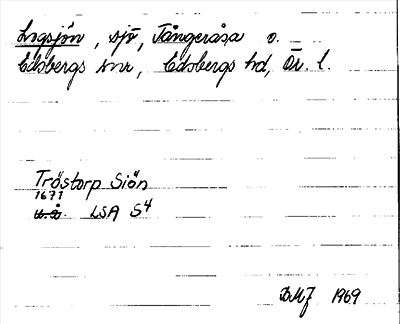 Logsjön, sjö, Tångeråsa o.
Edsbergs snr, Edsbergs hd, Ör. l.
Tröstorp Siön
1671
u.å. LSA S4
BMJ 1969